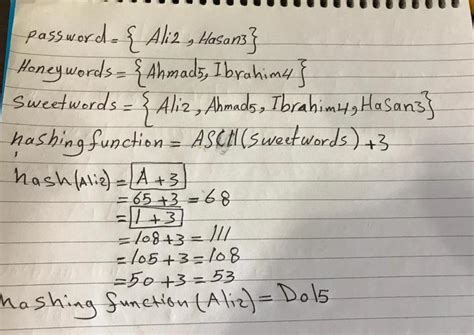 password = { Ali2 , Hasan3 }
Honeywords = { Ahmad5, Ibrahim4 }
Sweetwords = { Ali2, Ahmad5, Ibrahim4, Hasan3 }
hashing function = ASCII (sweetwords) + 3
hash (Ali2) = A + 3
= 65 + 3 = 68
= l + 3
= 108 + 3 = 111
= 105 + 3 = 108
= 50 + 3 = 53
hashing function (Ali2) = Dol5